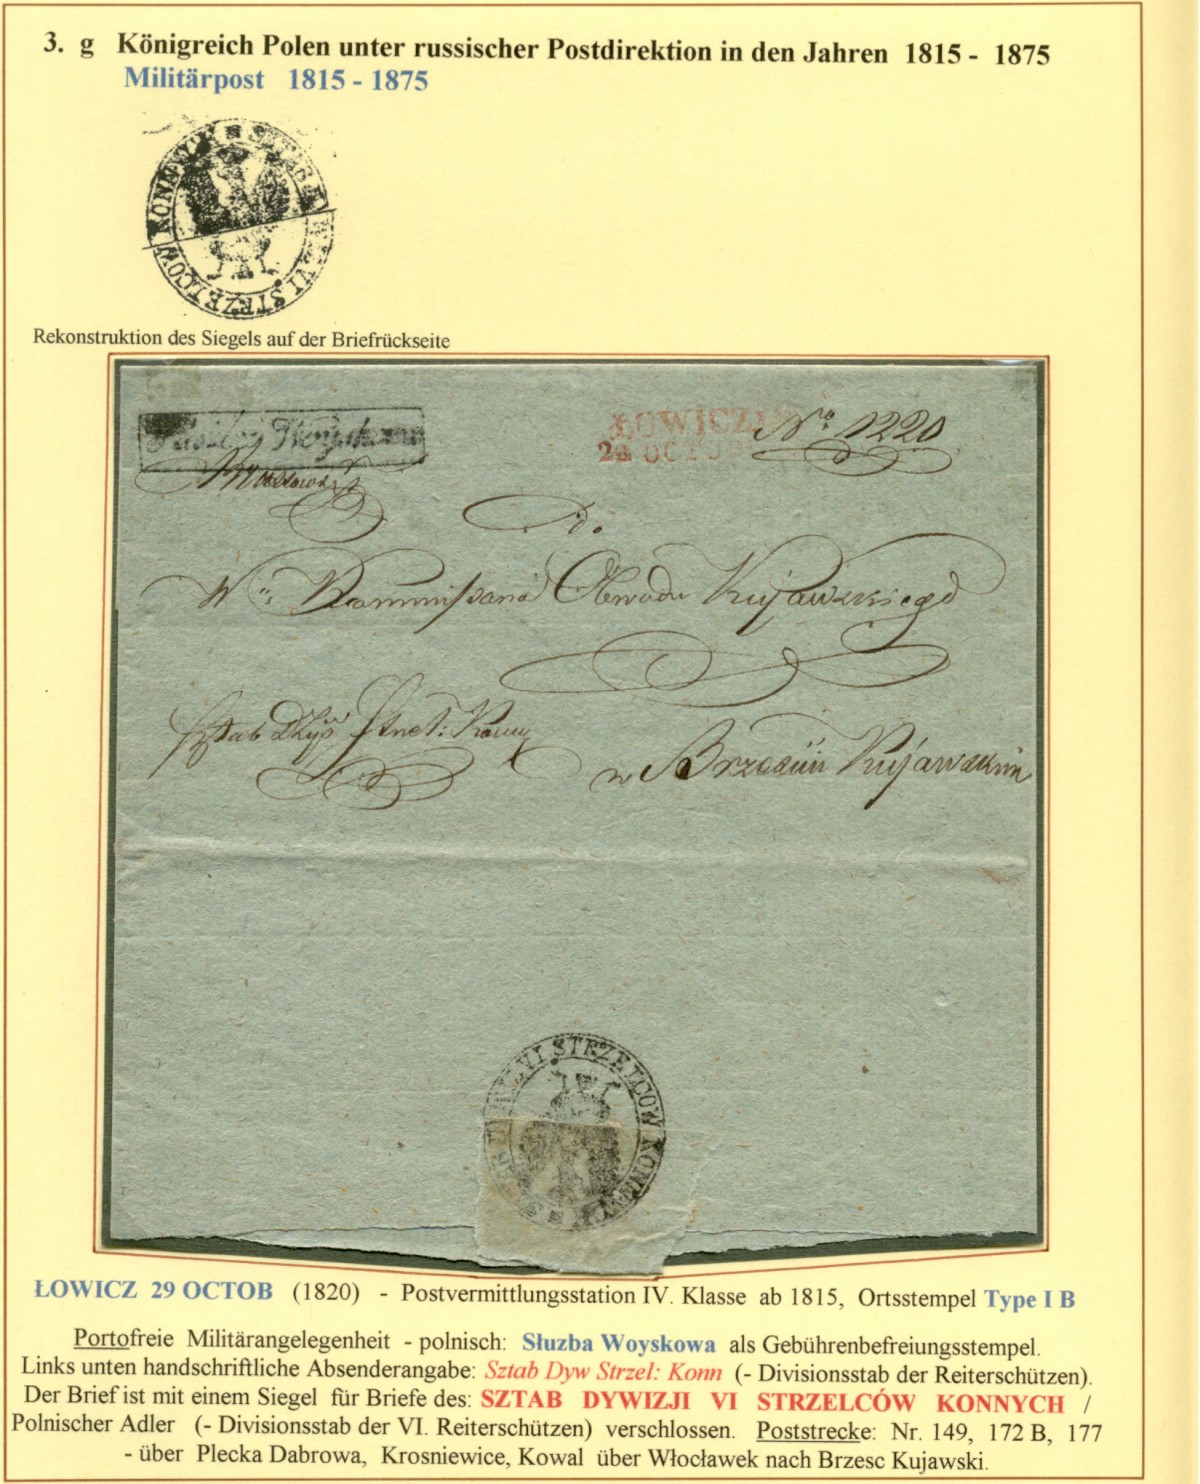 3. g Königreich Polen unter russischer Postdirektion in den Jahren 1815 - 1875
Militärpost 1815 - 1875
SZTAB DYWIZJI VI STRZELCOW KONNYCH
Rekonstruktion des Siegels auf der Briefrückseite
ŁOWICZ
29 OCTOB
No 1220
Do
Kommissarza Obwodu Kujawskiego
Sztab Dyw Strzel: Konny
w Brzesciu Kujawskim
STRZELCOW KONNYCH
ŁOWICZ 29 OCTOB (1820) - Postvermittlungsstation IV. Klasse ab 1815, Ortsstempel Type I B
Portofreie Militärangelegenheit - polnisch: Słuzba Woyskowa als Gebührenbefreiungsstempel.
Links unten handschriftliche Absenderangabe: Sztab Dyw Strzel: Konn (- Divisionsstab der Reiterschützen).
Der Brief ist mit einem Siegel für Briefe des: SZTAB DYWIZJI VI STRZELCÓW KONNYCH /
Polnischer Adler (- Divisionsstab der VI. Reiterschützen) verschlossen. Poststrecke: Nr. 149, 172 B, 177
- über Plecka Dabrowa, Krosniewice, Kowal über Włocławek nach Brzesc Kujawski.